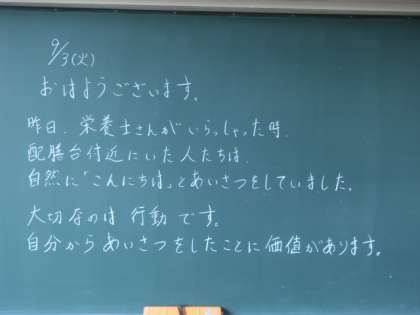 9/3(火)
おはようございます。
昨日、栄養士さんがいらっしゃった時、
配膳台付近にいた人たちは、
自然に「こんにちは」とあいさつをしていました。
大切なのは 行動 です。
自分から あいさつをしたことに 価値があります。